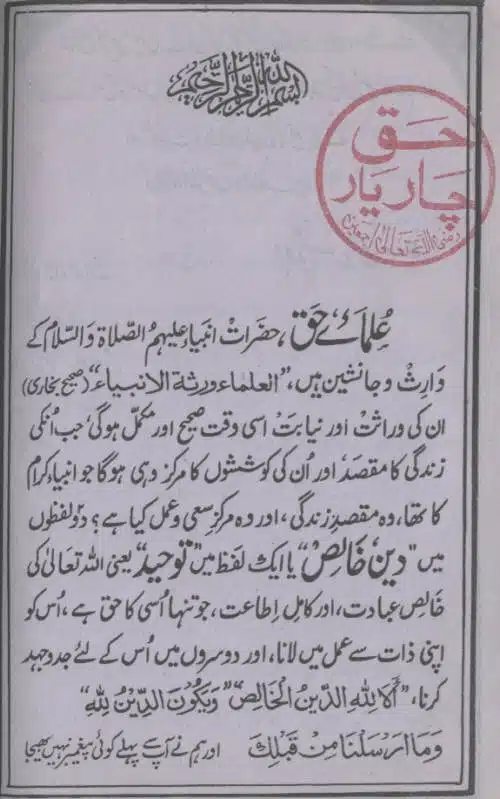 بسم الله الرحمن الرحيم
حق
چار یار
رضی اللہ تعالیٰ اجمعین
عُلمائے حق، حضرات انبیاء علیہم الصّلاۃ والسّلام کے
وارث و جانشین ہیں، "العلماء ورثة الانبياء" (صحیح بخاری)
ان کی وراثت اور نیابت اسی وقت صحیح اور مکمل ہوگی، جب اُنکی
زندگی کا مقصد، اور اُن کی کوششوں کا مرکز وہی ہوگا جو انبیاءِ کرام
کا تھا، وہ مقصدِ زندگی، اور وہ مرکزِ سعی وعمل کیا ہے؟ دو لفظوں
میں "دین خالص" یا ایک لفظ میں "توحید" یعنی اللہ تعالیٰ کی
خالص عبادت، اور کامل اطاعت، جو تنہا اُسی کا حق ہے، اس کو
اپنی ذات سے عمل میں لانا، اور دوسروں میں اُس کے لئے جدوجہد
کرنا، "أَلَا لِلّٰهِ الدِّينُ الْخَالِصُ" "وَيَكُونَ الدِّيْنُ لِلّٰهِ"
وَمَا اَرْسَلْنَا مِنْ قَبْلِكَ اور ہم نے آپ سے پہلے کوئی پیغمبر نہیں بھیجا